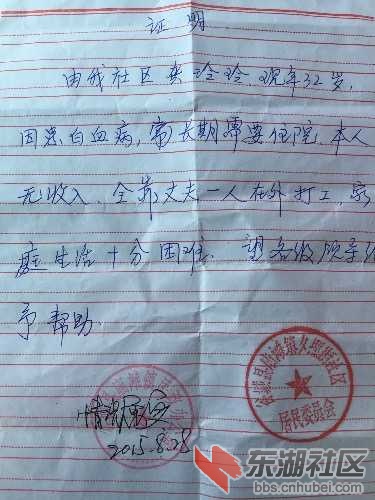 证明
由我社区 玲玲 现年32岁,
因患白血病, 需长期需要住院, 本人
无收入、全靠丈夫一人在外打工, 家
庭生活十分困难. 望各级领导给
予帮助.
情况属实
2015.8.28
居民委员会
东湖社区
bbs.cnhubei.com